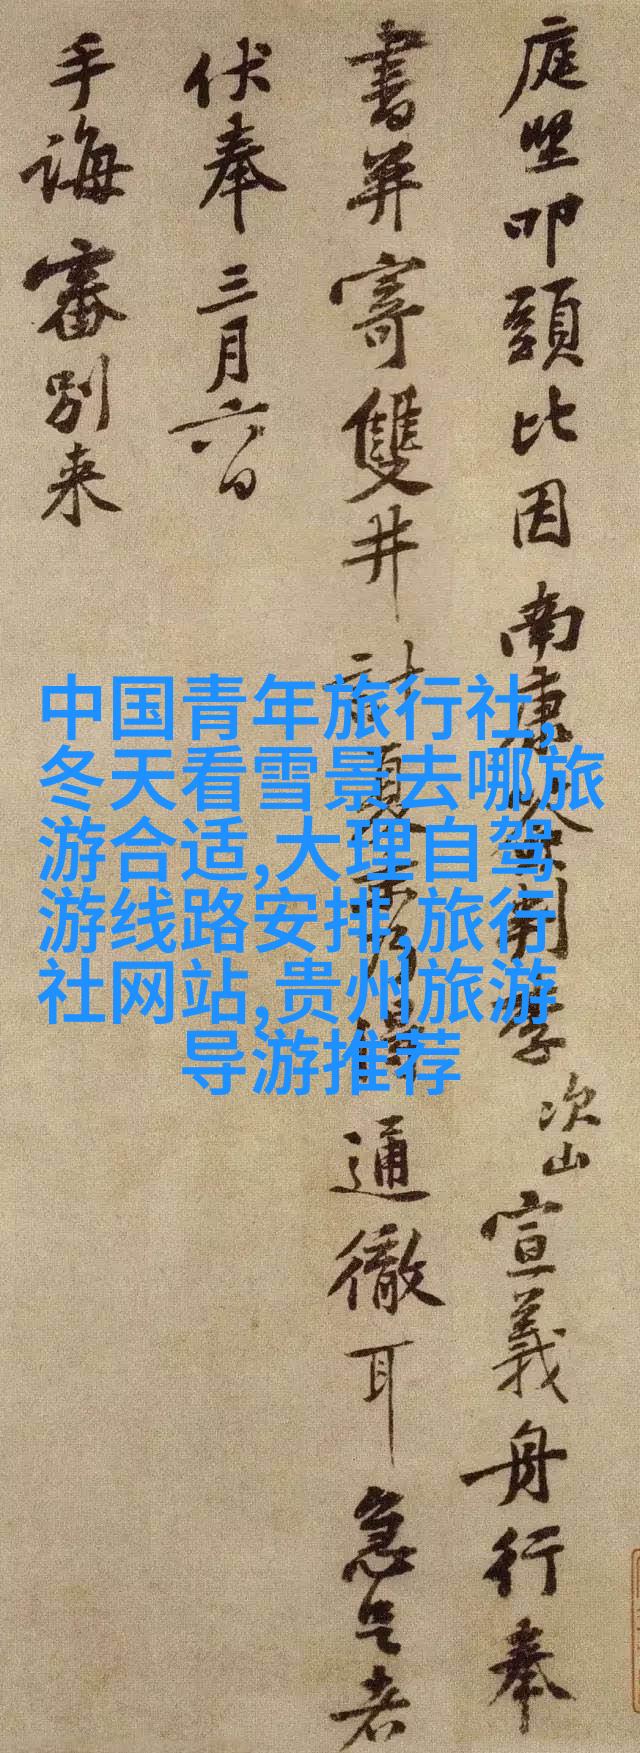 庭堅叩頭比因南康簽
次山宣義舟行奉
書并寄雙井計
通徹耳急足者
伏奉三月六日
手誨審別来
中国青年旅行社,
冬天看雪景去哪旅
游合适,大理自驾
游线路安排,旅行
社网站,贵州旅游
导游推荐